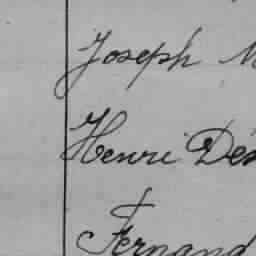 Joseph
Henri Dés
Fernand